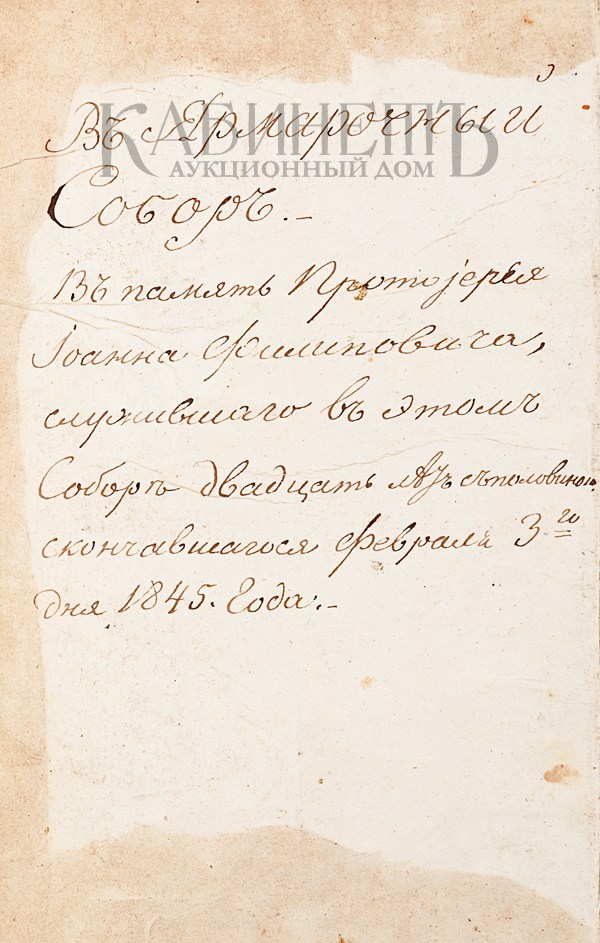 КАБИНЕТЪ
АУКЦИОННЫЙ ДОМ
Въ Ярмарочный
Соборъ.-
Въ память Протоіерея
Іоанна Филиповича,
служившаго въ этомъ
Соборѣ двадцать лѣтъ съ половиною,
скончавшагося Февраля 3го
дня 1845. Года:-